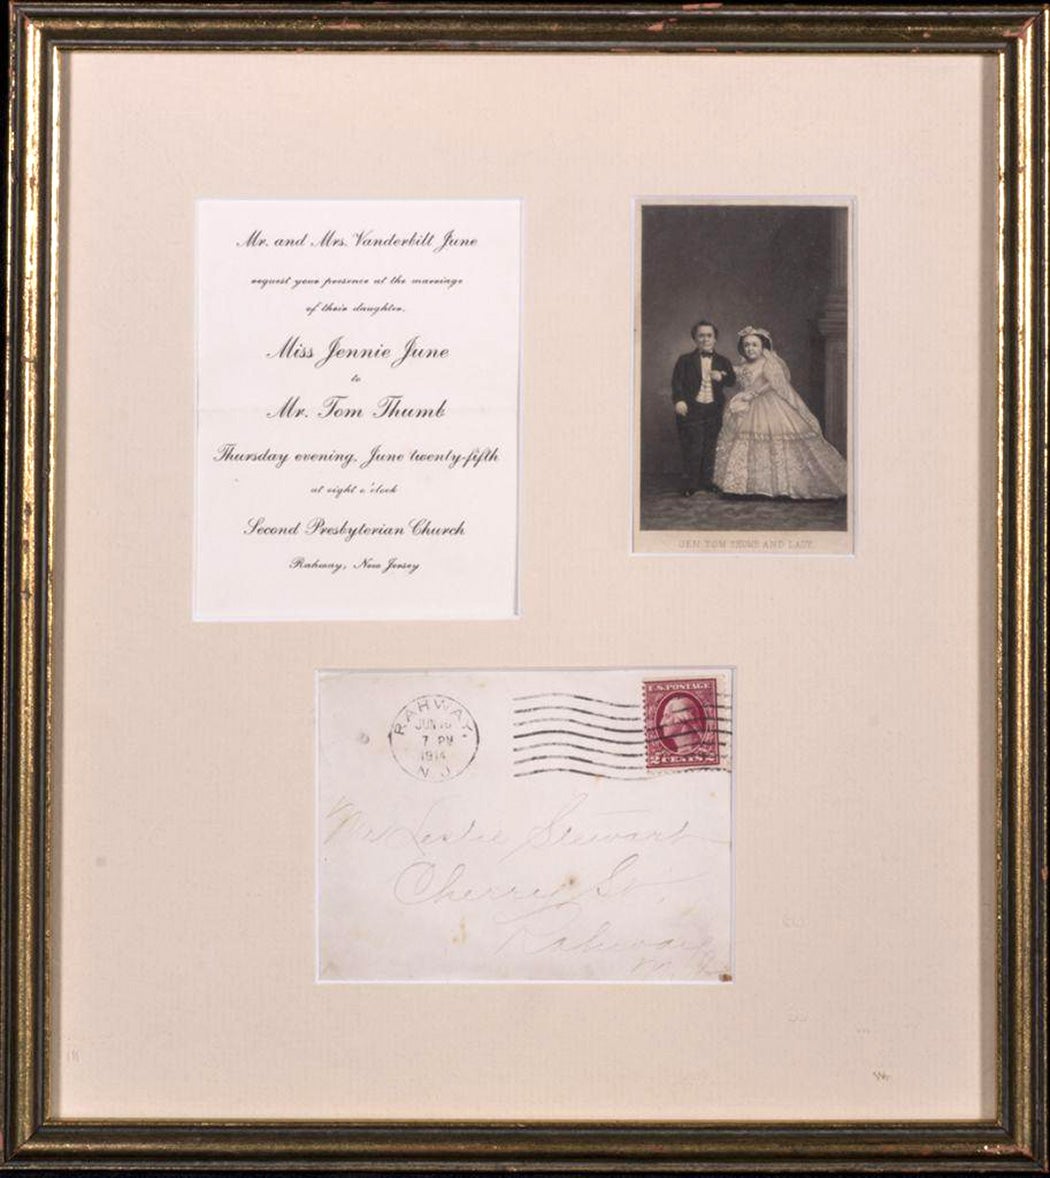 Mr. and Mrs. Vanderbilt June
request your presence at the marriage
of their daughter,
Miss Jennie June
to
Mr. Tom Thumb
Thursday evening, June twenty-fifth
at eight o'clock
Second Presbyterian Church
Rahway, New Jersey
GEN. TOM THUMB AND LADY.
RAHWAY,
JUN
7 PM
1914
N.J.
U.S. POSTAGE
2 CENTS 2
Leslie Stewart
Cherry St.
Rahway
N.J.